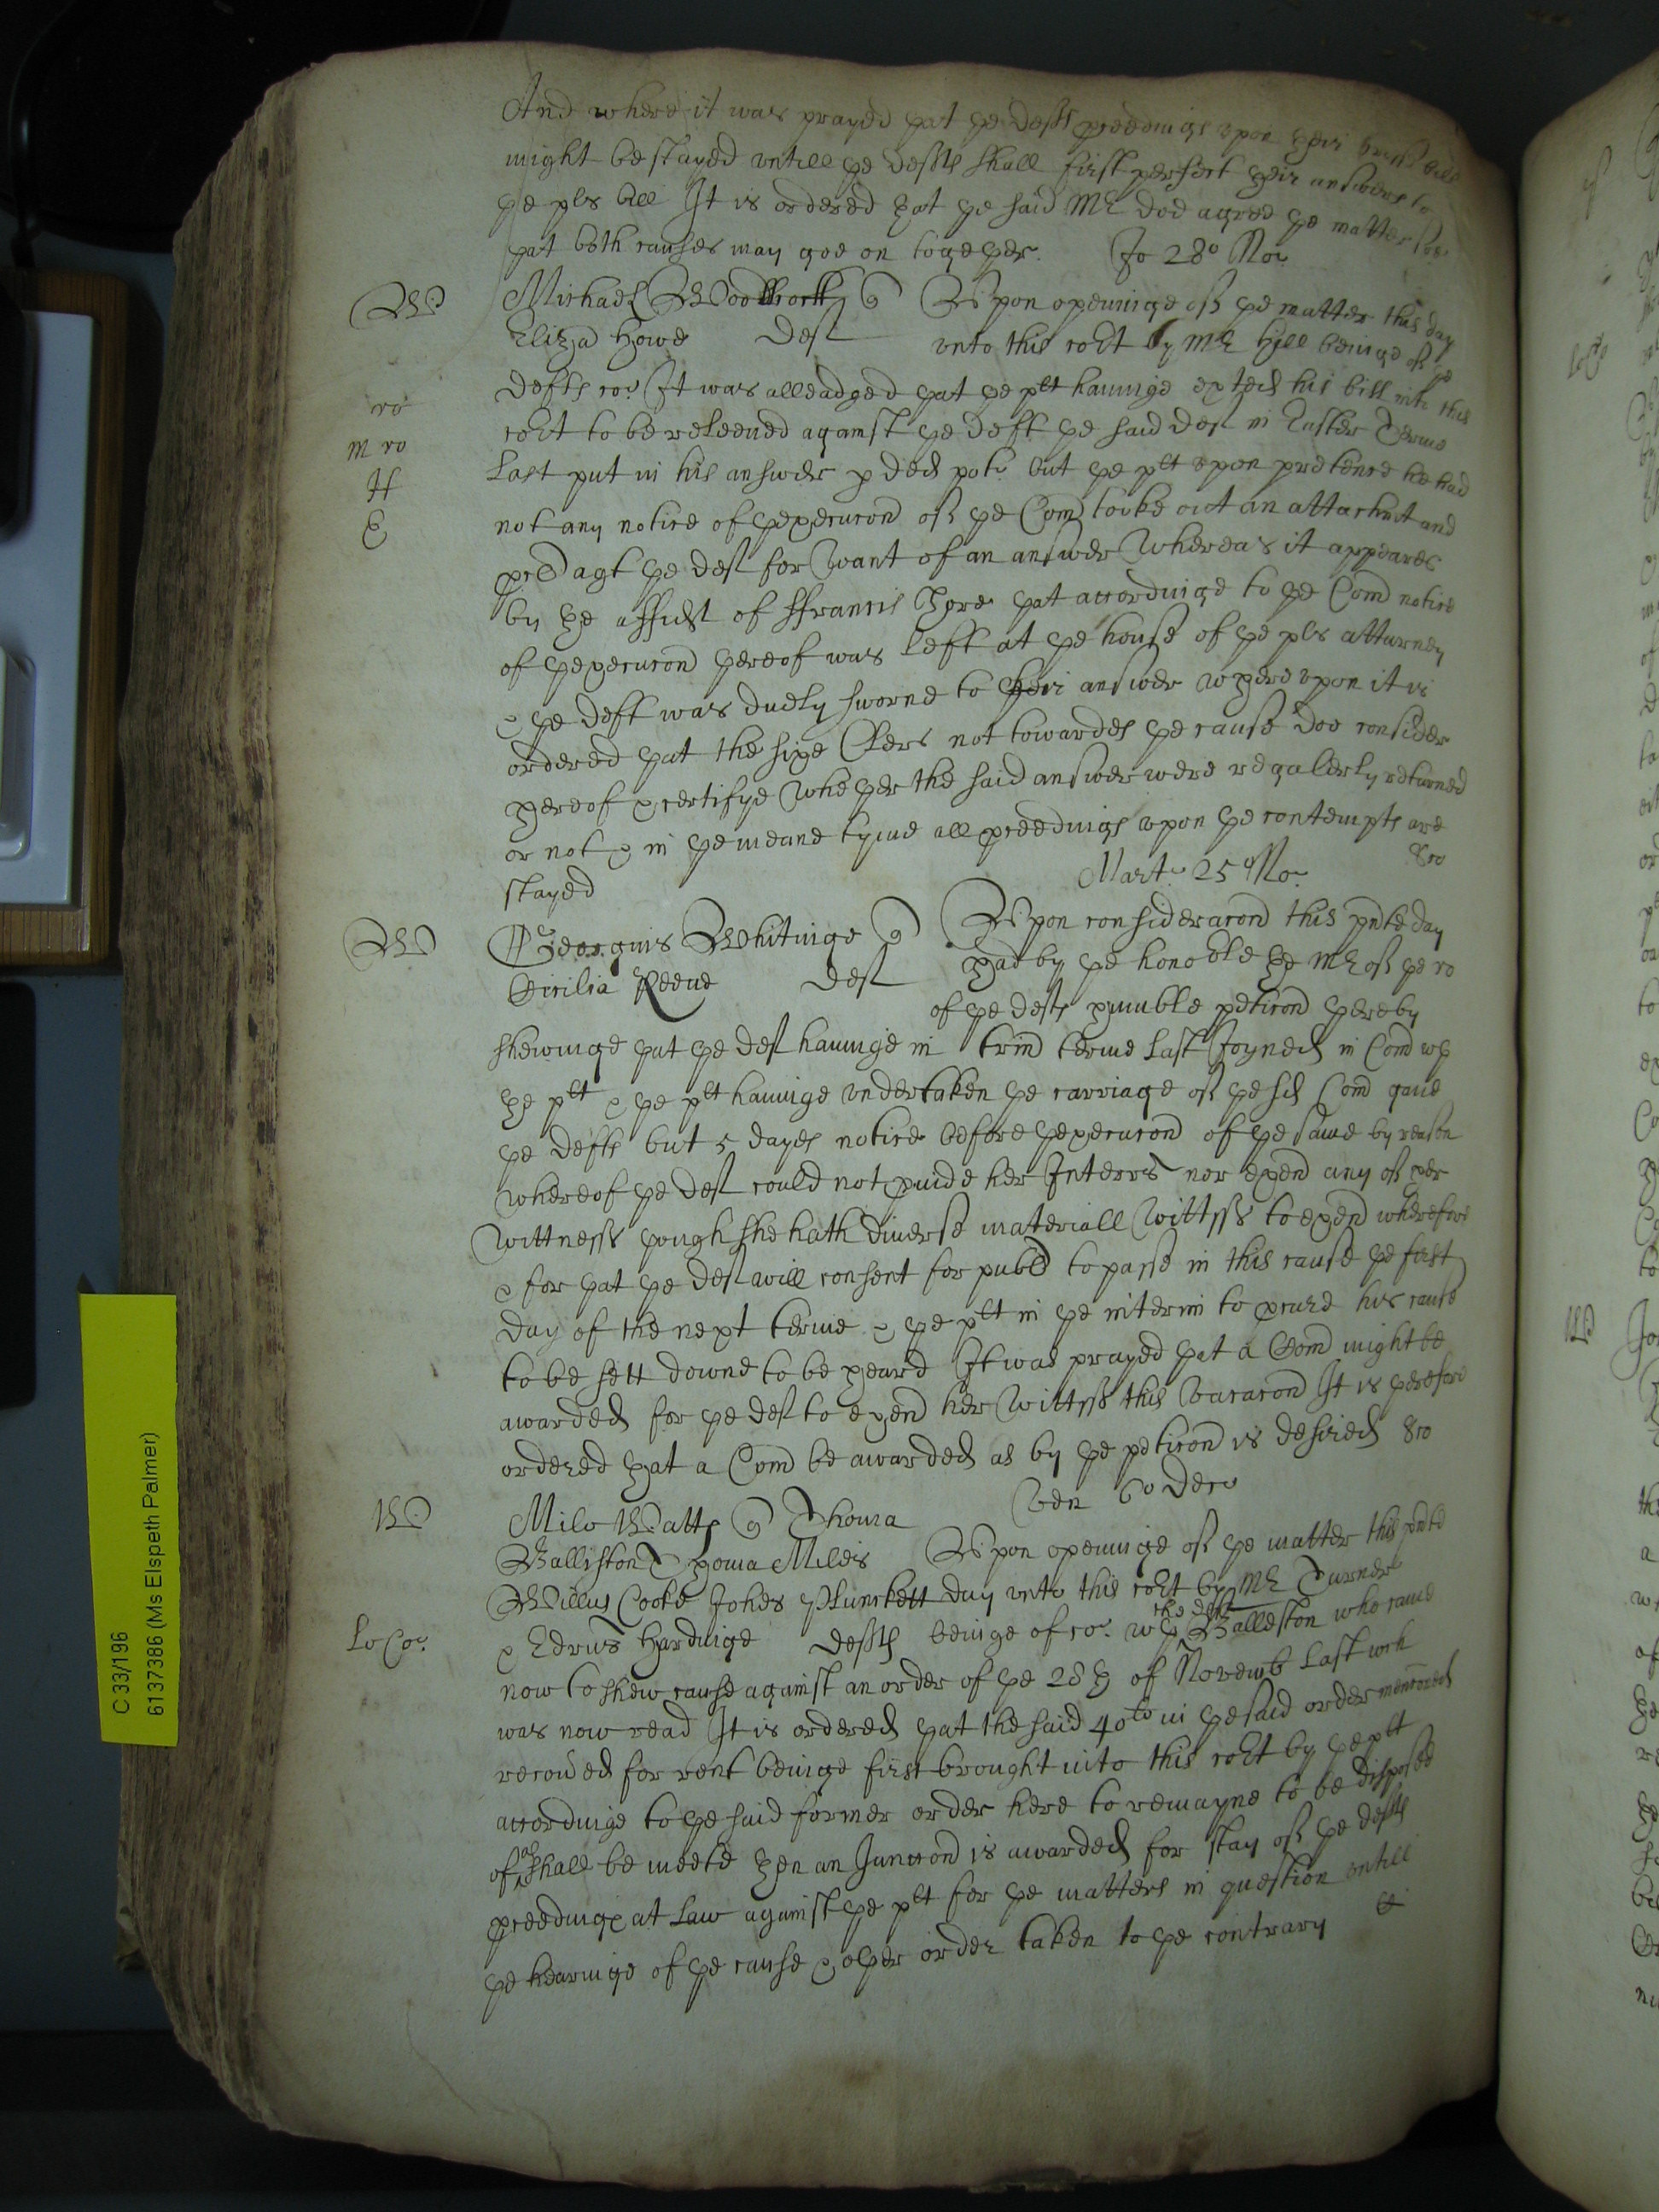 And where it was prayed þat þe defts pceedings vpon þeir bill
might be stayed vntill þe defts shall first perfect þeir answers to
þe pls bill It is ordered þat þe said Mr doe agree þe matter soe
þat both causes may goe on togeþer. Jo 28o No:
W
Michael Woodcock q
Eliza Howe def
Vpon openinge of þe matter this day
vnto this coЄt by Mr Hill beinge of þe
defts co: It was alleadged þat þe plt hauinge exhed his bill into this
co
m co
H
E
coЄt to be releeued against þe deft þe said def in Easter Terme
last put in his answer p ded pot: but þe plt vpon pretence he had
not any notice of þexecucon of þe Com tooke out an attachmt and
agt þe def for want of an answer Whereas it appeares
by þe affidt of ffrancis Gore þat accordinge to þe Com notice
of þexecucon þereof was left at þe house of þe pls atturney
& þe deft was duely sworne to þeir answer whereupon it is
ordered þat the sixe Clers not towardes þe cause doe consider
þereof & certifye wheþer the said answer were regularly returned
or not & in þe meane tyme all pceedings vpon þe contempts are
stayed &c
Mart: 25 No:
W
Georgius Whitinge q
Cicilia Reeue def
Vpon consideracon this pnte day
had by þe honoble þe Mr of þe ro
of þe defts humble peticon þereby
shewinge þat þe def hauinge in trin terme last Joyned in Com wth
þe plt & þe plt hauinge vndertaken þe carriage of þe sd Com gaue
þe defts but 5 dayes notice before þexecucon of þe same by reason
whereof þe def could not puide her Interrs nor exen any of her
wittnesses þough she hath diuerse materiall wittnes to exen wherefore
& for þat þe def will consent for publ to passe in this cause þe first
day of the next terme & þe plt in þe interim to pcure his cause
to be sett downe to be heard It was prayed þat a Com might be
awarded for þe def to exen her wittnes this vacacon It is þerefore
ordered þat a Com be awarded as by þe peticon is desired &c
Ven 6o Dec
W
Milo Watts q Thoma
Balliston Thoma Miles
Willus Cooke Johes Plunckett
& Edrus Hardinge defts
Vpon openinge of þe matter this pnte
day vnto this coЄt by Mr Turner
Lo Co:
beinge of co: wth the deft Balleston who came
now to shew cause against an order of þe 28th of Novemb last wch
was now read It is ordered þat the said 40 li in þe said order menconed
receiued for rent beinge first brought into this coЄt by þe plt
accordinge to þe said former order here to remayne to be disposed
of as shall be meete þen an Iniuncon is awarded for stay of þe defts
pceedings at Law against þe plt for þe matters in question vntill
þe hearinge of þe cause & oþer order taken to þe contrary &
C 33/196
6137386 (Ms Elspeth Palmer)